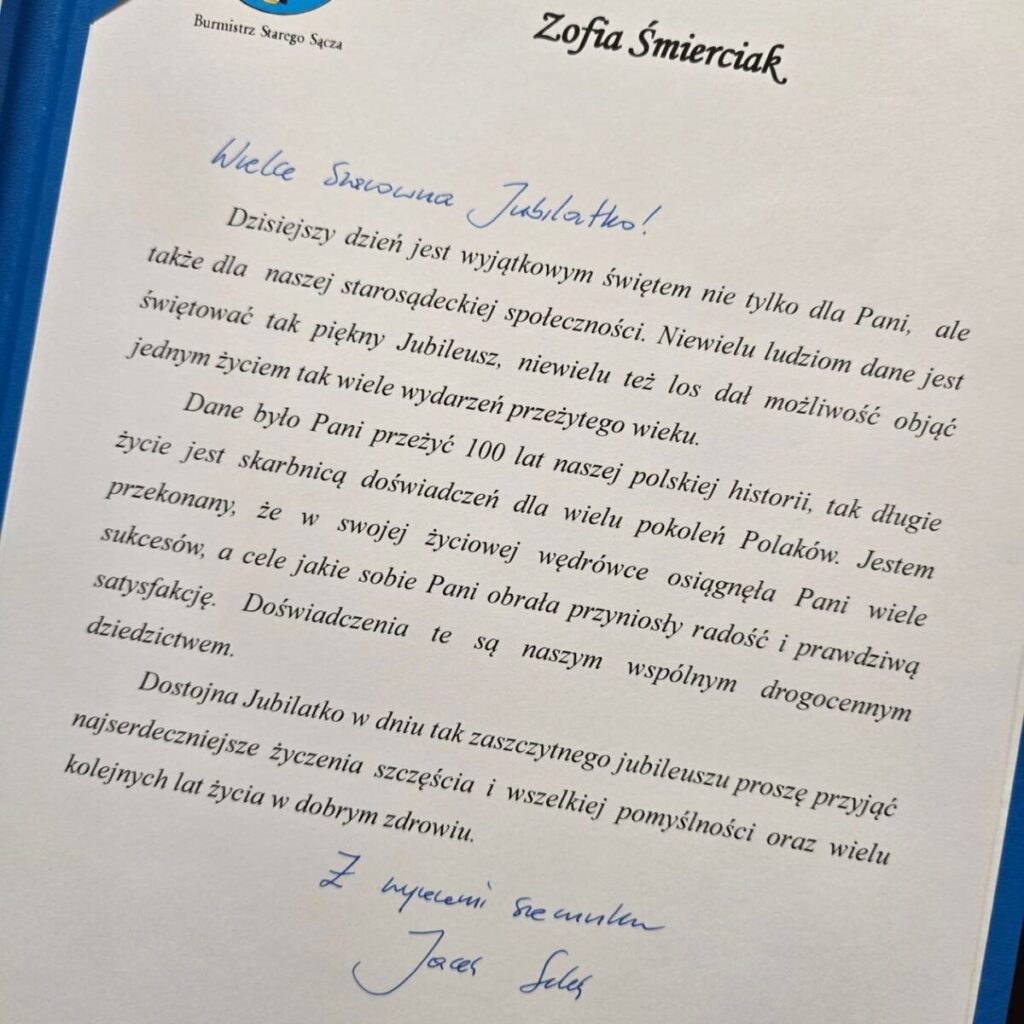 Burmistrz Starego Sącza
Zofia Śmierciak
Wielce Szanowna Jubilatko!
Dzisiejszy dzień jest wyjątkowym świętem nie tylko dla Pani, ale
także dla naszej starosądeckiej społeczności. Niewielu ludziom dane jest
świętować tak piękny Jubileusz, niewielu też los dał możliwość objąć
jednym życiem tak wiele wydarzeń przeżytego wieku.
Dane było Pani przeżyć 100 lat naszej polskiej historii, tak długie
życie jest skarbnicą doświadczeń dla wielu pokoleń Polaków. Jestem
przekonany, że w swojej życiowej wędrówce osiągnęła Pani wiele
sukcesów, a cele jakie sobie Pani obrała przyniosły radość i prawdziwą
satysfakcję. Doświadczenia te są naszym wspólnym drogocennym
dziedzictwem.
Dostojna Jubilatko w dniu tak zaszczytnego jubileuszu proszę przyjąć
najserdeczniejsze życzenia szczęścia i wszelkiej pomyślności oraz wielu
kolejnych lat życia w dobrym zdrowiu.
Z wyrazami szacunku
Jacek